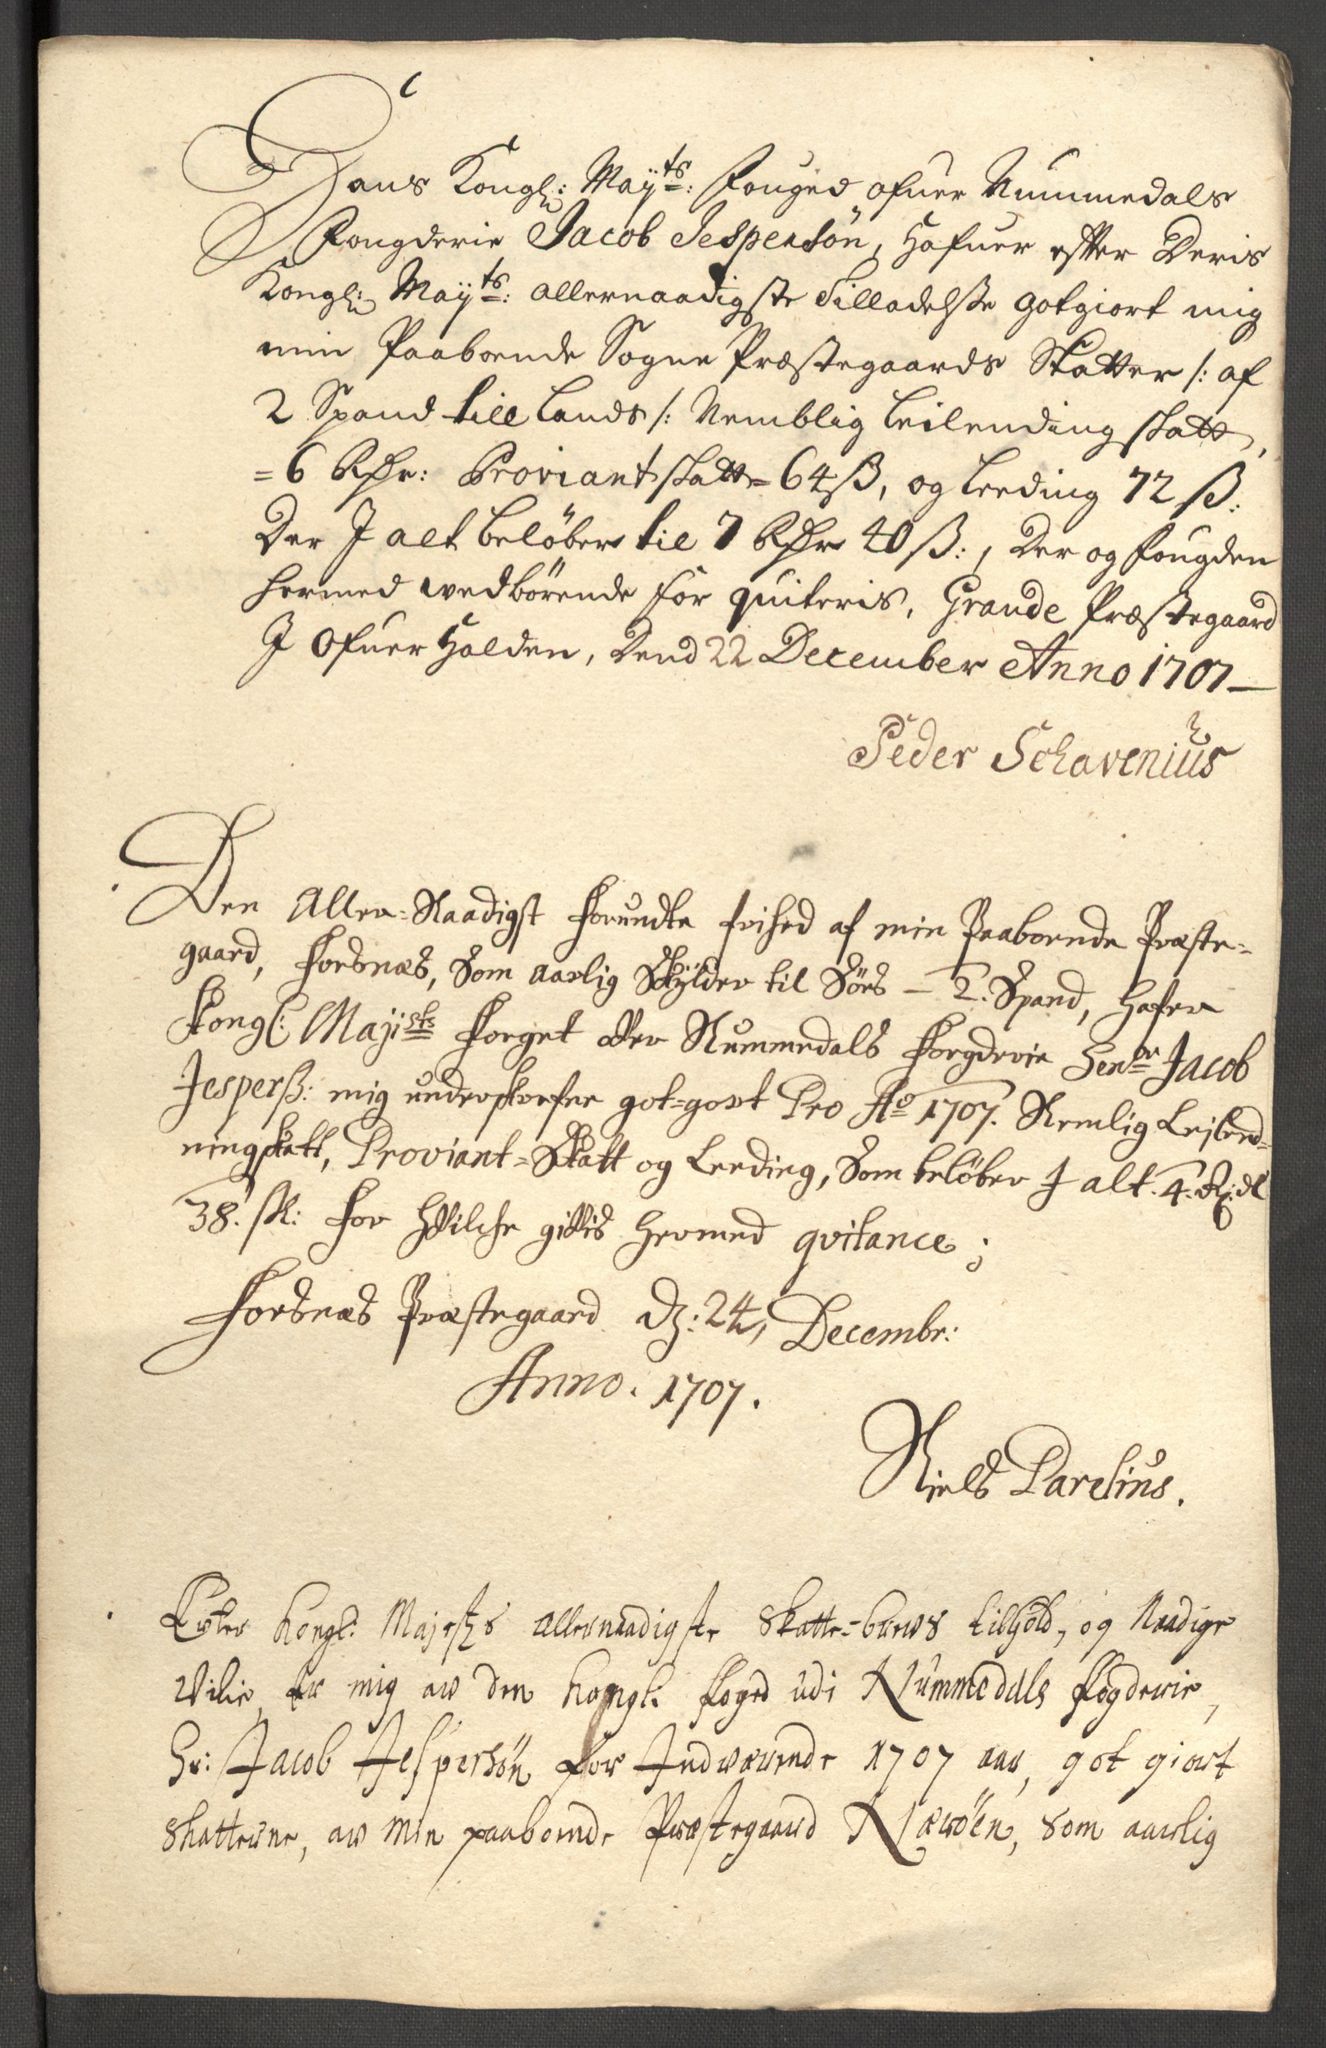 Hans Kongl: Maÿts: Fouged ofuer Nummedals
Fougderie Jacob Jespersön, Hafuer effter Deris
Kongl: Maÿts: allernaadigste Tilladelsse gotgiort mig
min Paaboende Sogne Præstegaards Skatter /: af
2 Spand till Lands /: Nemblig Leilending skatt,
=6 Rdr: Proviant skatt=64 ß, og Leeding 72 ß:
Der J alt beløber til 7 Rdr 40 ß:, Der og fougden
hermed wedbørende for quiteris, Grande Præstegaard
J Ofuer Halden, Dend 22 December Anno 1707
Peder Schavenius
Den Aller-Naadigst forundte frihed af min Paaboende Præste-
gaard, Forsnæs, Som aarlig Skylder til Sørs - 2. Spand, hafer
Kongl: Majists Foeget over Nummedals Foegderie Senr Jacob
Jesperß: mig underskrefne got-gort Pro Ao 1707. Nemlig Lejlend-
ningskatt, Proviant-Skatt og Leeding, Som beløber J alt. 4. Rdl
38. sk: for hvilche gives hermed qvitance;
Forsnæs Præstegaard dz: 24, Decembr:
Anno. 1707.
Niels Parelius.
Efter Kongl: Majestz allernaadigste Skatte-brews tilhold, og Naadige
Vilie, er mig aw den kongl: foged udi Nummedals fogderie,
Hr: Jacob Jespersön for Indwærende 1707 aar, got giort
skatterne, aw min paaboende Præstegaard Nærøen, som aarlig